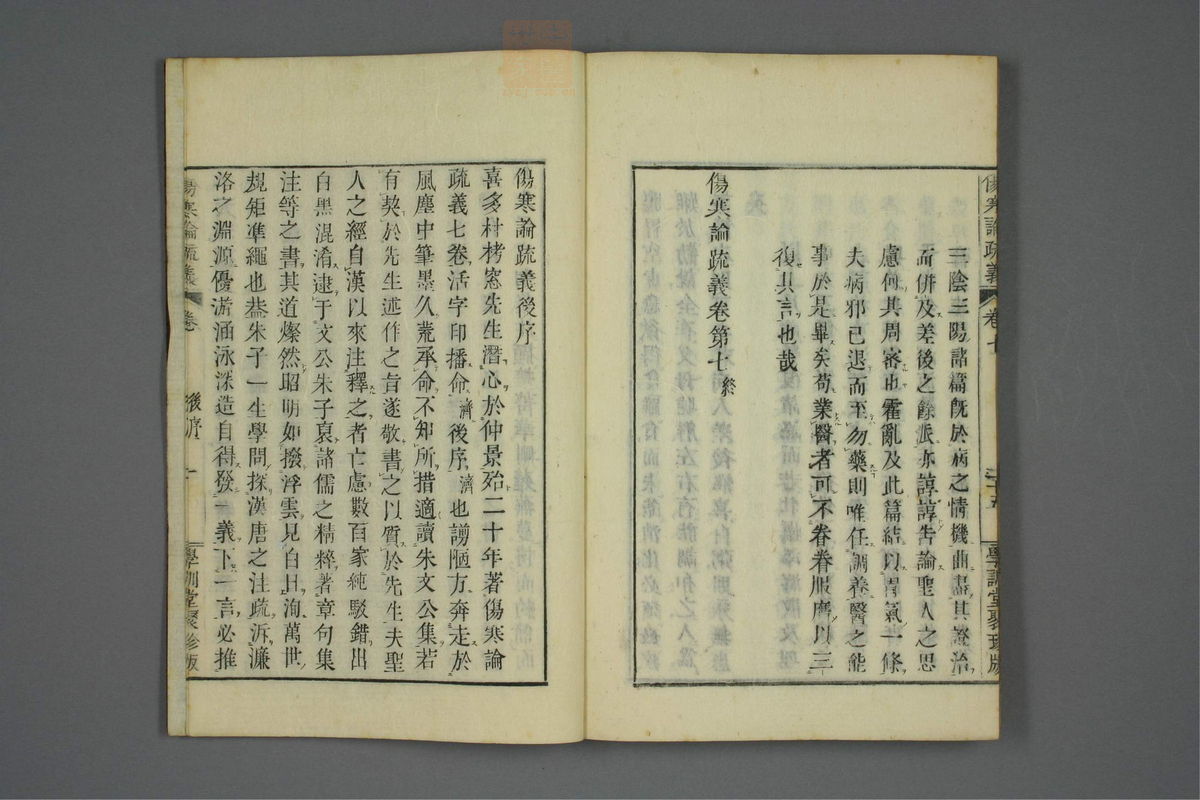 傷寒論疏義 卷七 二十五 學訓堂聚珍版
三陰三陽諸篇既於病之情機曲盡其證治
而併及差後之餘派亦諄諄告論聖人之思
慮何其周審也霍亂及此篇結以胃氣一條
夫病邪已退而至勿藥則唯任調養醫之能
事於是畢矣苟業醫者可不眷眷服膺以三
復其言也哉
傷寒論疏義卷第七終
傷寒論疏義後序
喜多村栲窓先生潛心於仲景殆二十年著傷寒論
疏義七卷活字印播命濟後序濟也謭陋方奔走於
風塵中筆墨久荒承命不知所措適讀朱文公集若
有契於先生述作之旨遂敬書之以質於先生夫聖
人之經自漢以來注釋之者亡慮數百家純駁錯出
白黑混淆逮于文公朱子裒諸儒之精粹著章句集
注等之書其道燦然昭明如撥浮雲見白日洵萬世
規矩準繩也葢朱子一生學問探漢唐之注疏泝濂
洛之淵源優游涵泳深造自得發一義下一言必推
傷寒論疏義 卷 後序 一 學訓堂聚珍版